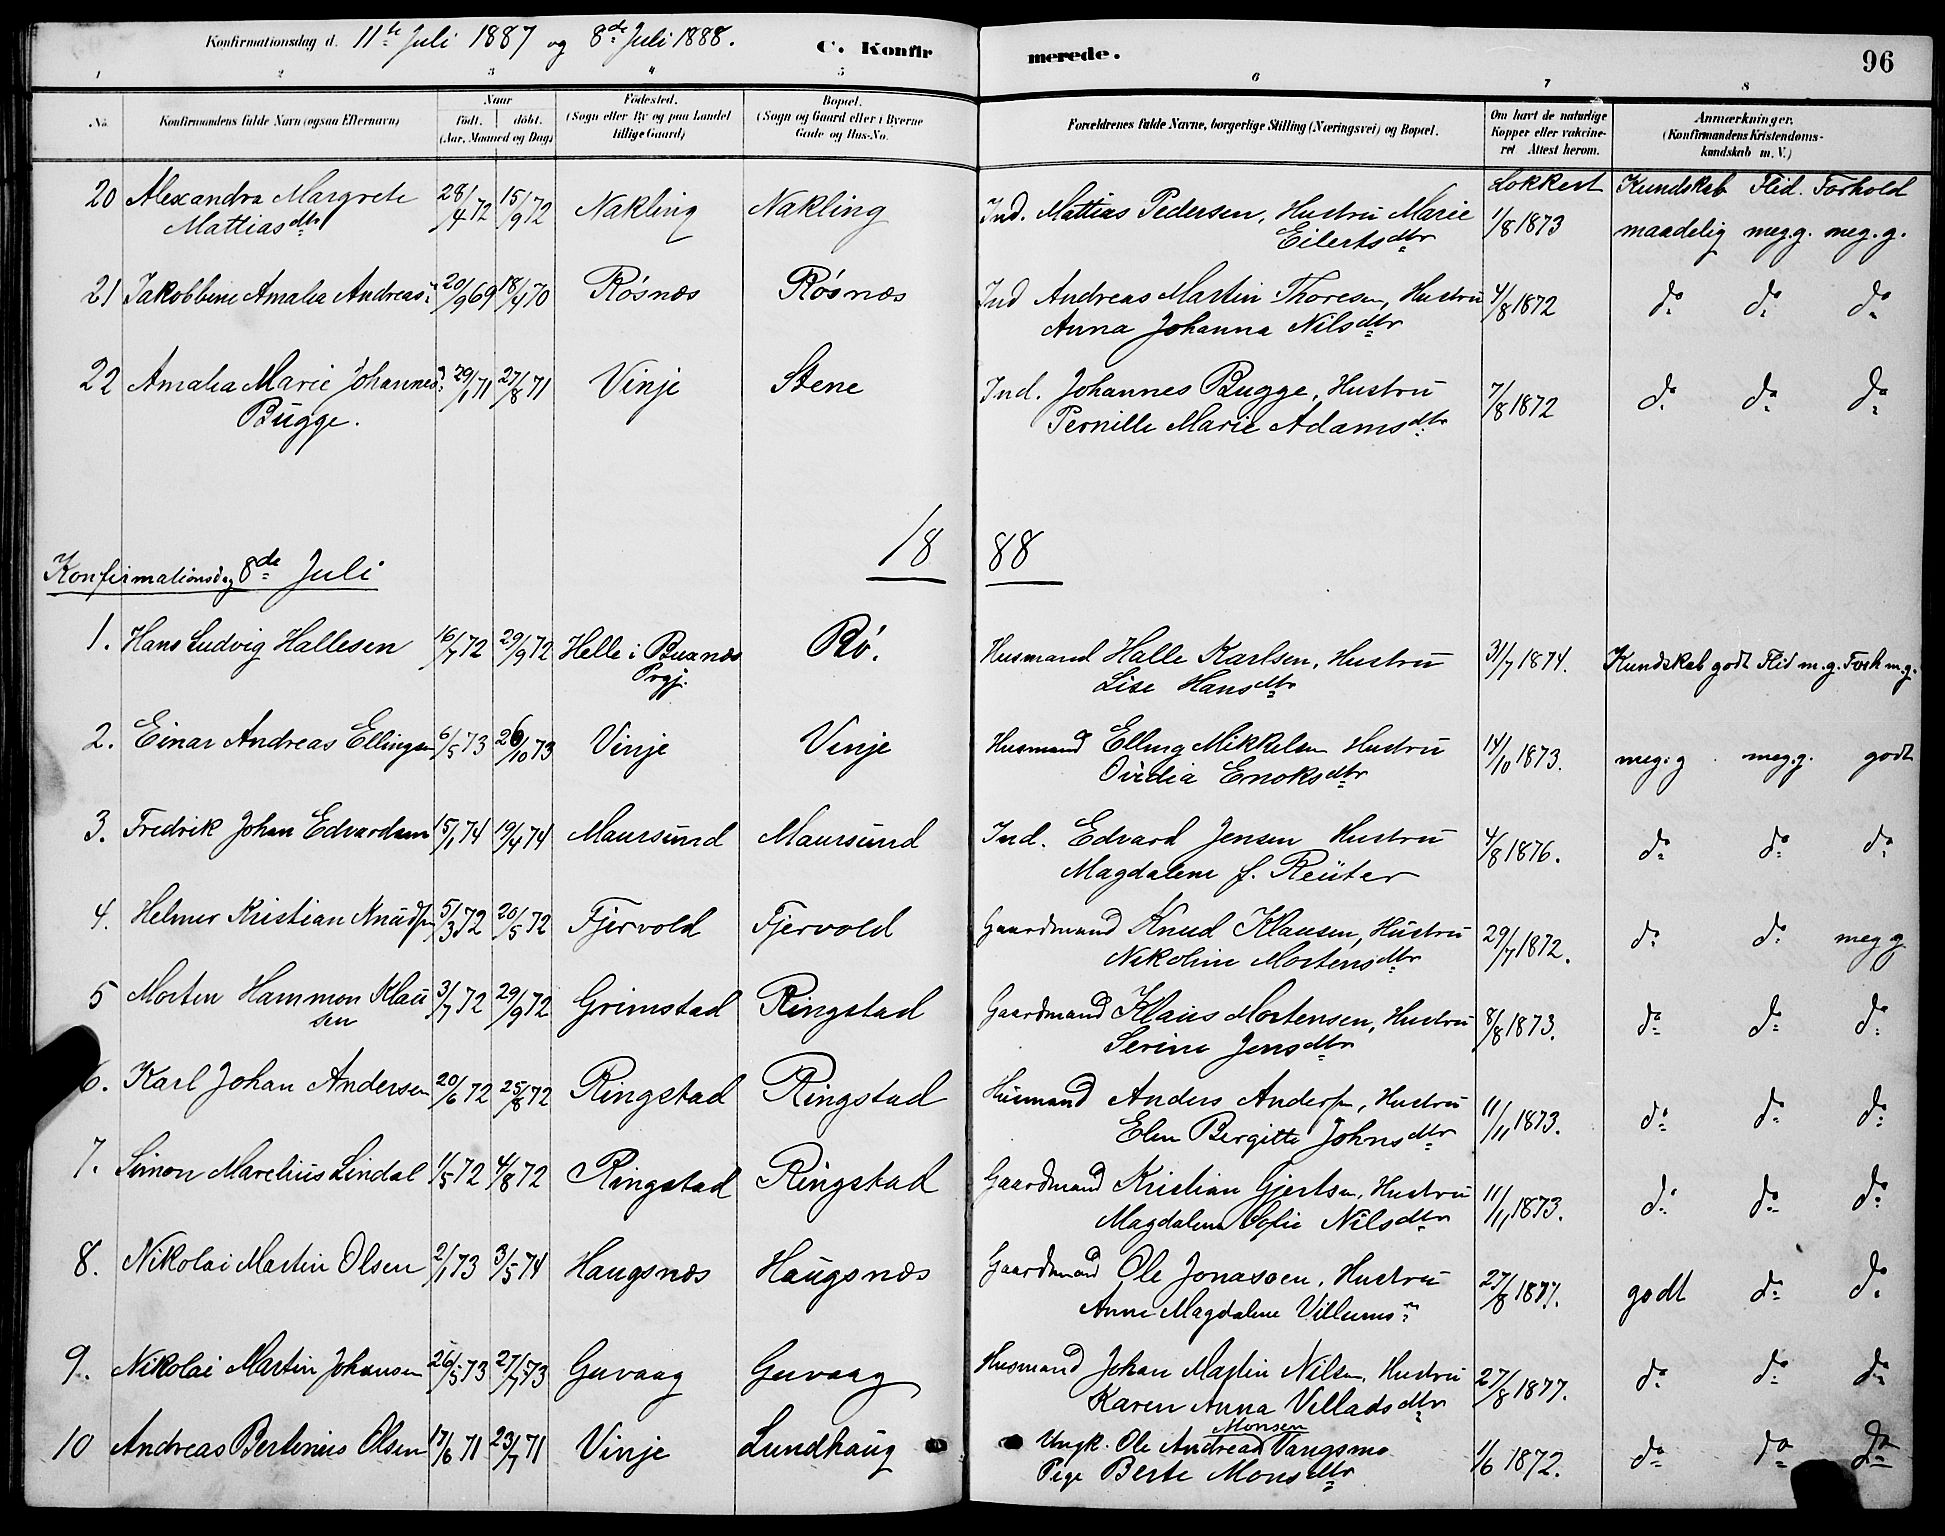 Konfirmationsdag d. 11te Juli 1887 og 8de Juli 1888. C. Konfirmerede. 96
1 2 3 4 5 6 7 8
No. Konfirmandens fulde Navn (ogsaa Efternavn) Naar födt. döbt. (Aar, Maaned og Dag) Födested. (Sogn eller By og paa Landet tillige Gaard) Bopæl. (Sogn og Gaard eller i Byerne Gade og Hus-No. Forældrenes fulde Navne, borgerlige Stilling (Næringsvei) og Bopæl. Om havt de naturlige Kopper eller vakcineret Attest herom. Anmærkninger. (Konfirmandens Kristendomskundskab m. V.)
Lokkert Kundskab Flid. Forhold
20 Alexandra Margrete 28/4 72 15/9 72 Nakling Nakling Ind. Mattias Pedersen, Hustru Marie 1/8 1873 maadelig meg.g. meg.g.
Mattiasdtr Eilertsdtr
21 Jakobbine Amalia Andreasn 20/9 69 18/4 70 Rósnæs Rósnæs Ind Andreas Martin Thoresen, Hustru 4/8 1872 do do do
Anna Johanna Nilsdtr
22 Amalia Marie Johannesn 29/1 71 27/8 71 Vinje Stene Ind. Johannes Bugge, Hustru 7/8 1872 do do do
Bugge. Pernille Marie Adamsdtr
1888
Konfirmationsdag 8de Juli
1. Hans Ludvig Hallesen 16/7 72 29/9 72 Helle i Buxnæs Ró. Husmand Halle Karlsen, Hustru 31/7 1874. Kundskab godt Flid m.g. Forh m.g.
Prgj. Lise Hansdtr
2. Einar Andreas Ellingsen 6/5 73 26/10 73 Vinje Vinje Husmand Elling Mikkelsen Hustru 14/10 1873. meg.g. meg.g. godt
Ovidia Enoksdtr
3. Fredrik Johan Edvardsen 15/1 74 19/4 74 Maursund Maursund Ind. Edvard Jensen Hustru 4/8 1876. do do do
Magdalene f. Reuter
4. Helmer Kristian Knudsen 5/3 72 20/5 72 Fjervold Fjervold Gaardmand Knud Klausen, Hustru 29/7 1872. do do meg g
Nikoline Mortensdtr
5 Morten Hammon Klau 3/7 72 29/9 72 Grimstad Ringstad Gaardmand Klaus Mortensen, Hustru 8/8 1873. do do do
sen Serine Jensdtr
6. Karl Johan Andersen 20/6 72 25/8 72 Ringstad Ringstad Husmand Anders Andersen, Hustru 11/11 1873. do do do
Elen Bergitte Johnsdtr
7. Simon Marelius Lindal 11/5 72 4/8 72 Ringstad Ringstad Gaardmand Kristian Gjertsen, Hustru 11/11 1873. do do do
Magdalena Sofie Nilsdtr
8. Nikolai Martin Olsen 2/1 73 3/5 74 Haugsnæs Haugsnæs Gaardmand Ole Jonassen, Hustru 27/8 1877. godt do do
Anne Magdalene Villumsn
9. Nikolai Martin Johansen 26/5 73 27/7 73 Guvaag Guvaag Husmand Johan Martin Nilsen, Hustru 27/8 1877. do do do
Karen Anna Velladsdtr
10 Andreas Bertinius Olsen 17/6 71 23/7 71 Vinje Lundhaug Ungk. Ole Andreas Monsen Vangsmo 1/6 1872. do do do
Pige Berte Monsdtr